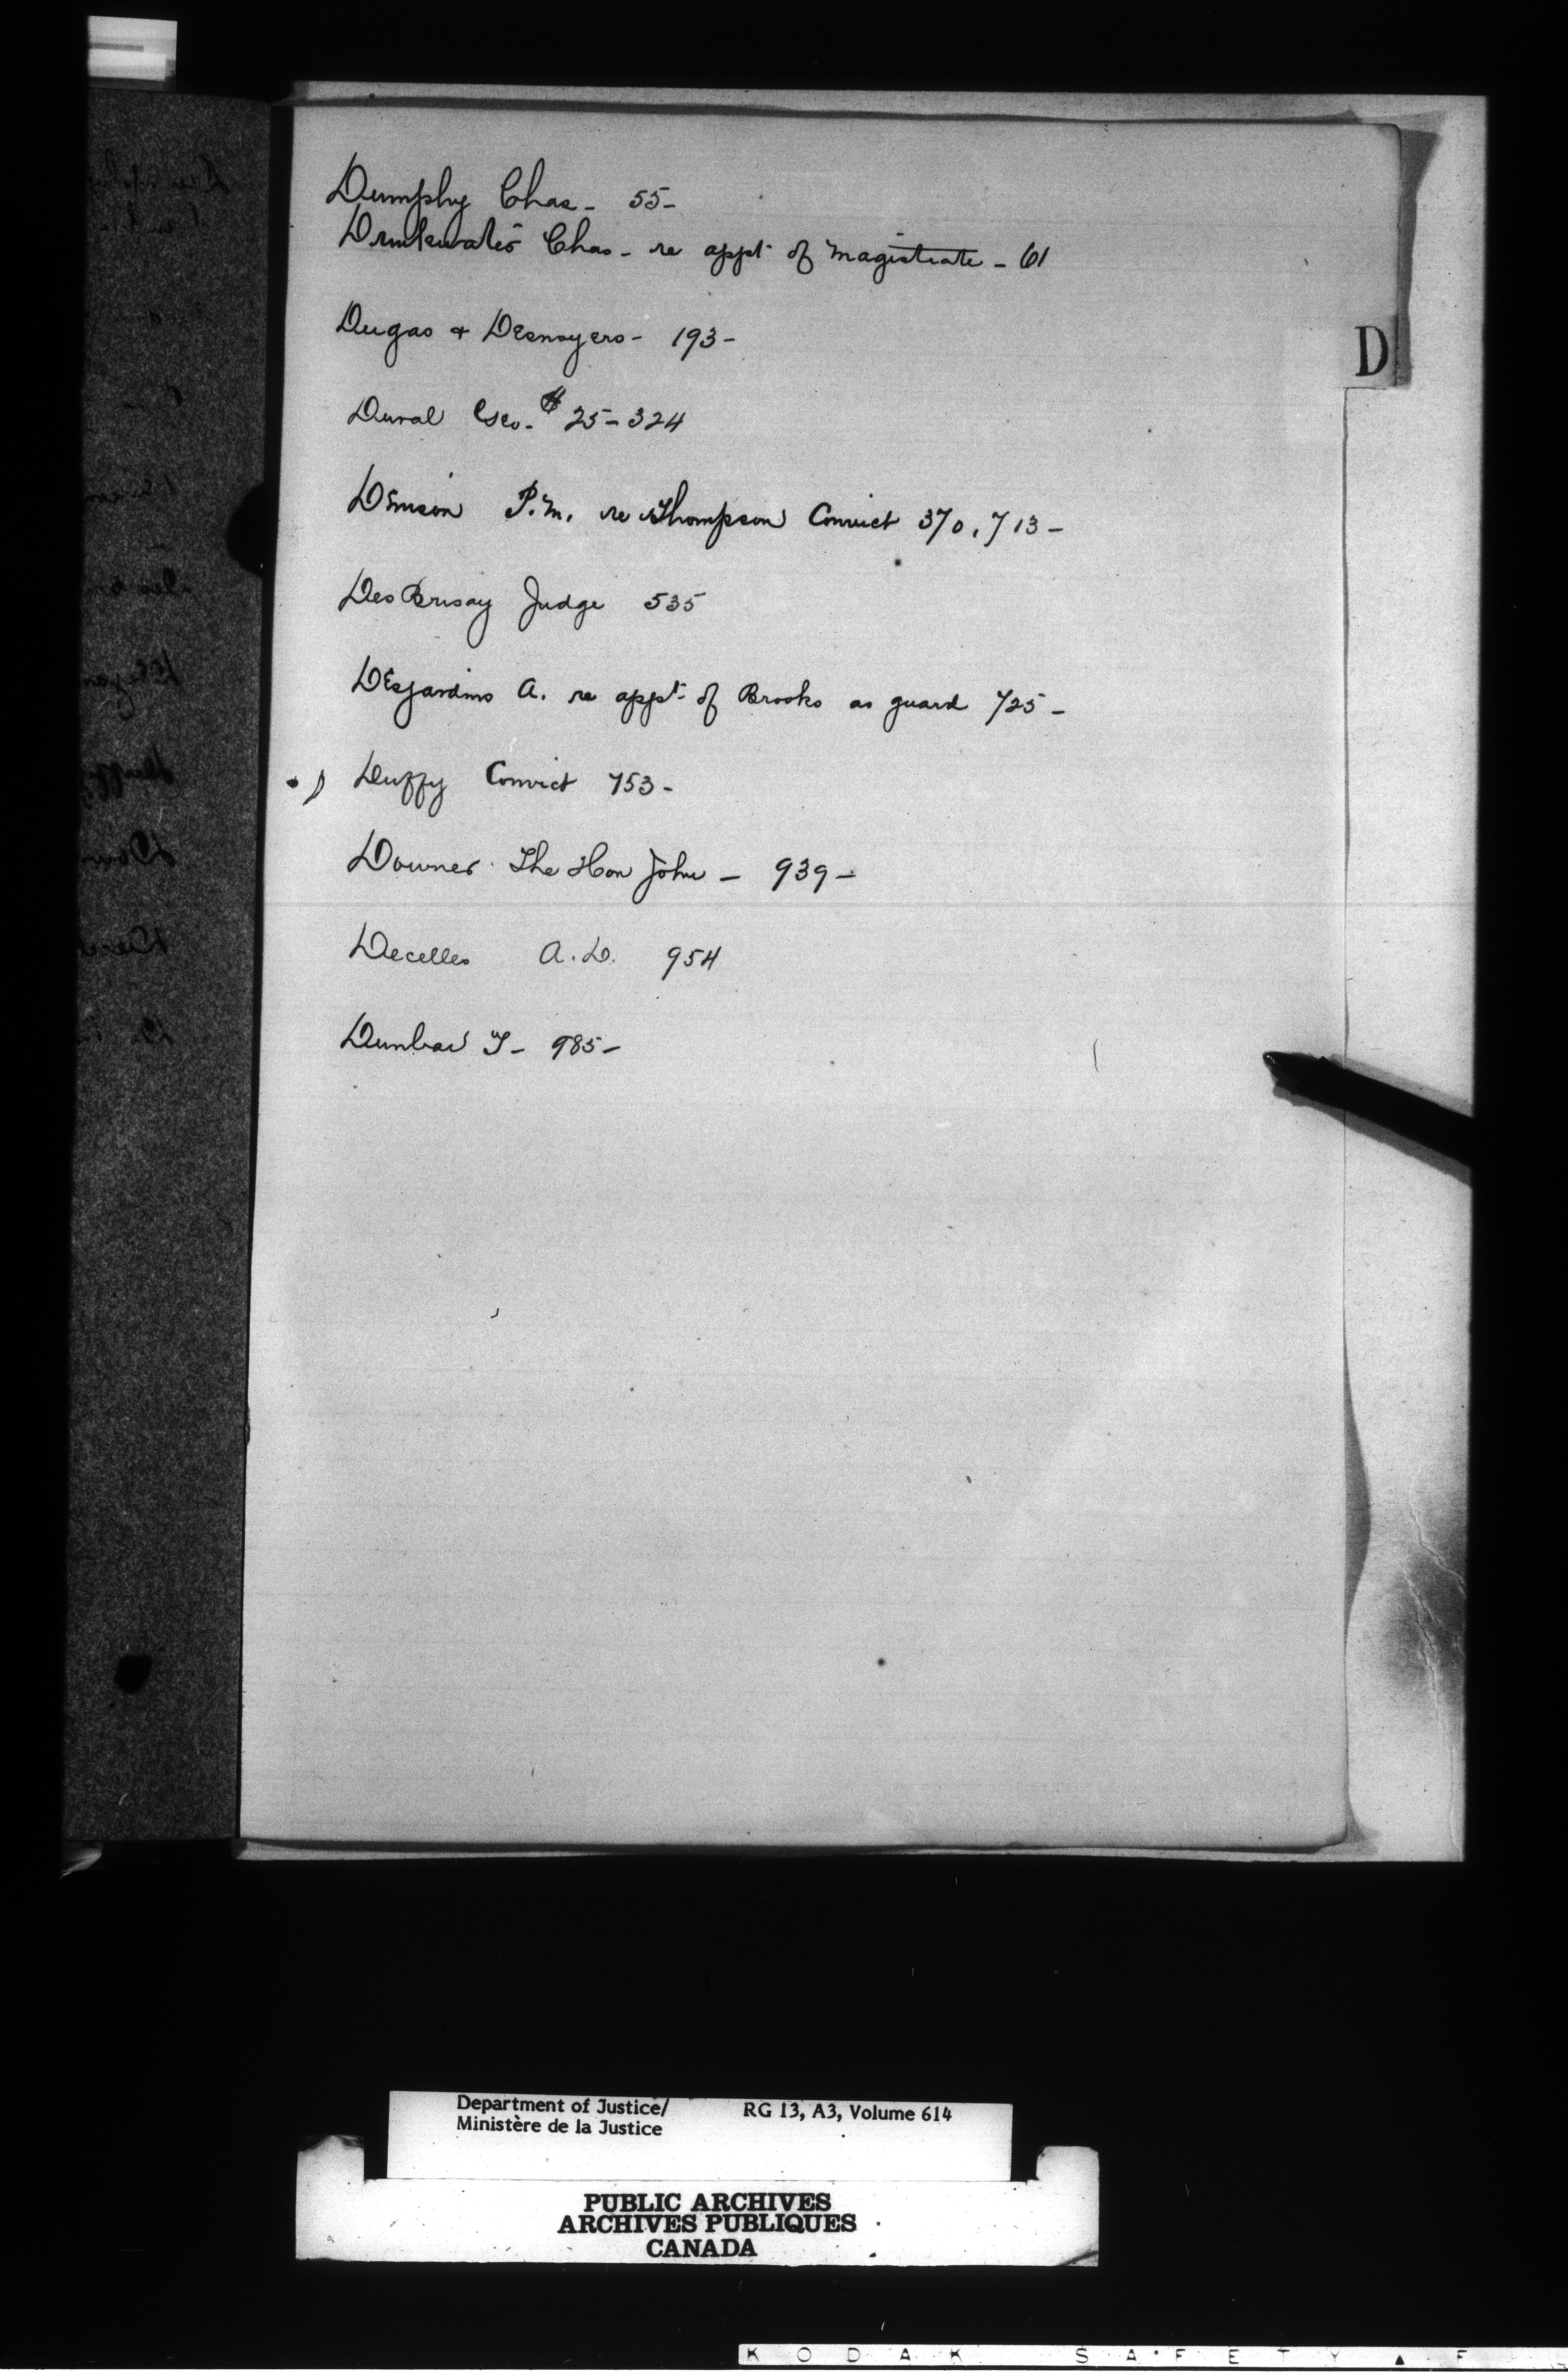 Dumphy Chas - 55 -
Drinkwater Chas - re appt of Magistrate - 61
Dugas & Desnoyers - 193 -
D
Duval Geo. $25 - 324
Denison P.M. re Thompson Convict 370, 713 -
DesBrisay Judge 535
Desjardins A. re appt of Brooks as guard 725 -
Duffy Convict 753 -
Downer The Hon John - 939 -
Decelles A.D. 954
Dunbar T - 985 -
Department of Justice/ RG 13, A3, Volume 614
Ministère de la Justice
PUBLIC ARCHIVES
ARCHIVES PUBLIQUES
CANADA
KODAK SAFETY ▲ F